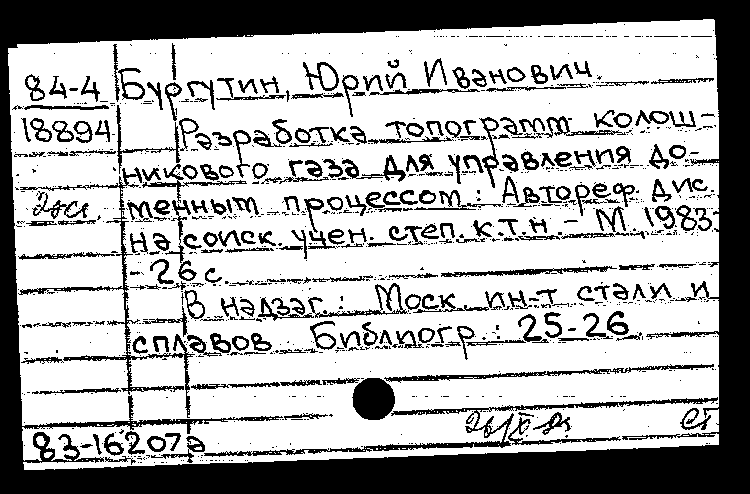 84-4 Бургутин, Юрий Иванович.
18894 Разработка топограмм колош-
никового газа для управления до-
2экз. менным процессом: Автореф. дис.
на соиск. учен. степ. к.т.н. - М., 1983.-
- 26 с.
В надзаг.: Моск. ин-т стали и
сплавов Библиогр.: 25-26
83-16207а